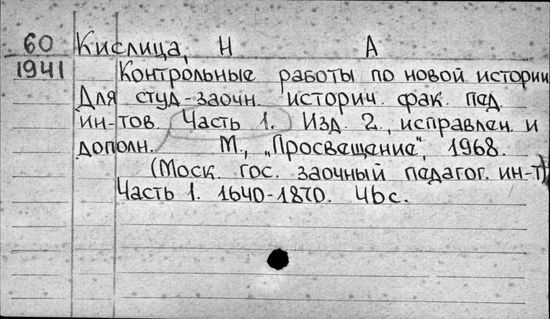 60 Кислица, Н А
1941 Контрольные работы по новой истории
Для студ-заочн. историч. фак. пед.
ин-тов. Часть 1. Изд. 2., исправлен. и
дополн. М., „Просвещение", 1968.
(Моск. гос. заочный педагог. ин-т)
Часть 1. 1640-1870. 46с.